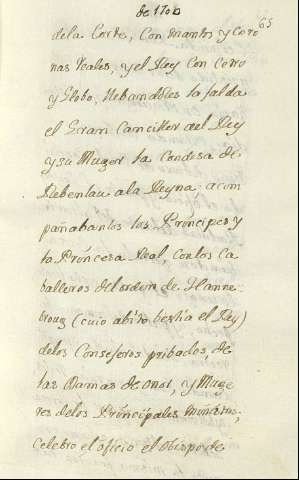 de 1700
65
dela Corte, Con mantos y Coro
nas Reales, y el Rey Con Cetro
y Globo, llebandoles la falda
el Gran Canciller del Rey
y su Muger la Condesa de
Rebenlau ala Reyna, acom
pañabanlos los Príncipes y
la Princesa Real, conlos Ca
balleros del orden de
broug (cuio abito bestia el Rey)
delos Consejeros pribados, de
las Damas de onor, y Muge
res delos Principales
Celebro el oficio el Obispo de